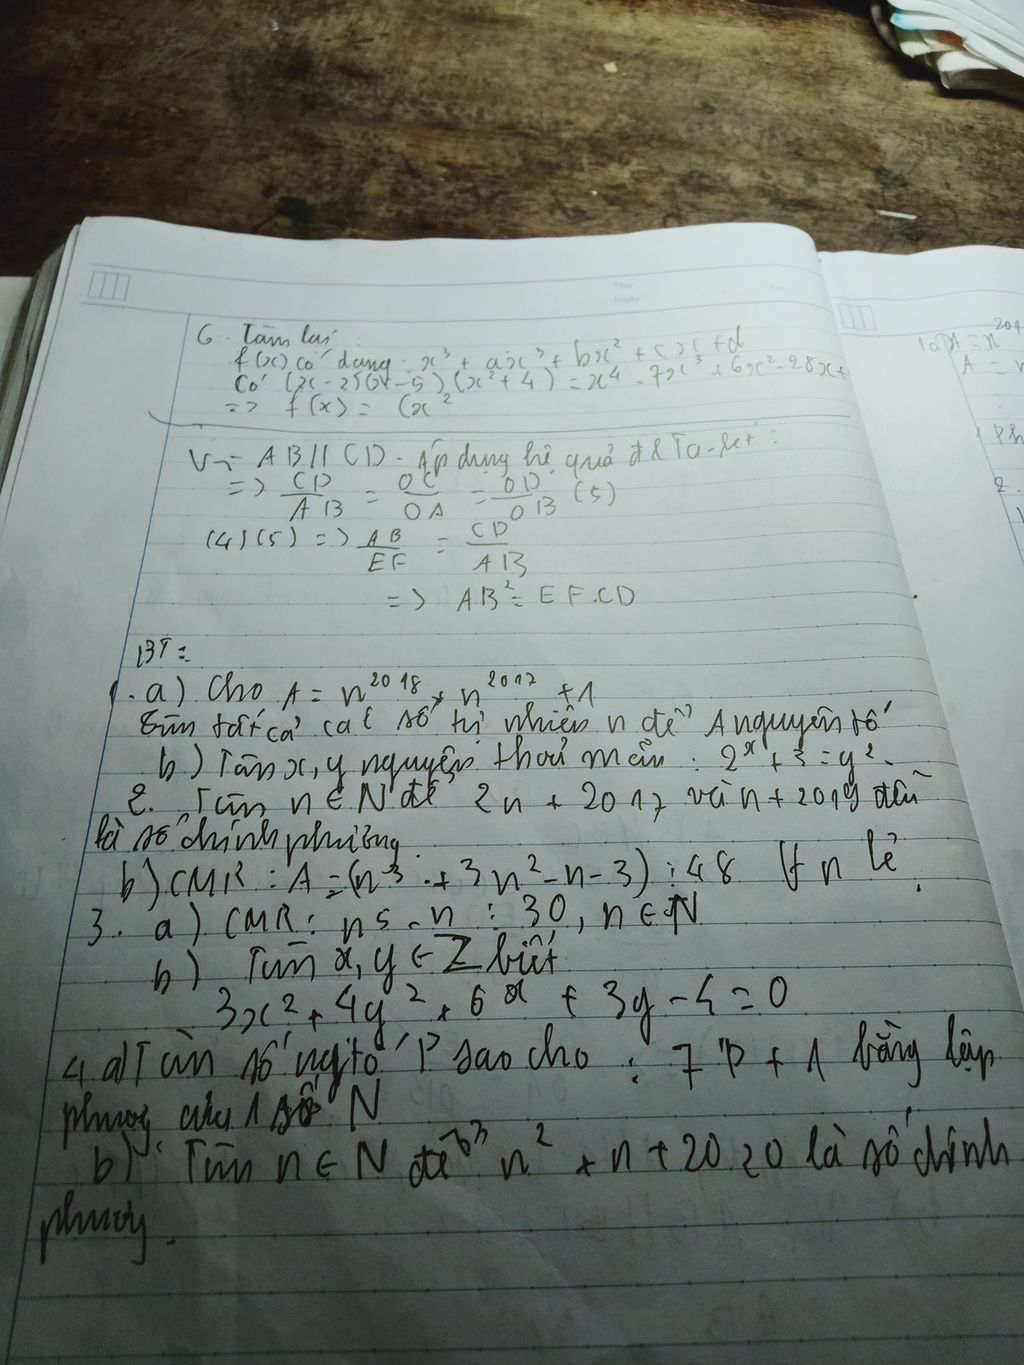 Thứ
Ngày
No.
6. Làm lại
f(x) có dạng: x³ + ax³ + bx² + cx + d
Có (x-2)(x-5)(x²+4) = x⁴ - 7x³ + 6x² - 28x +
=> f(x) = (x²
Vì AB // CD. Áp dụng hệ quả đ l Ta-lét:
=> CD/AB = OC/OA = OD/OB (5)
(4)(5) => AB/EF = CD/AB
=> AB² = EF.CD
BT:
1. a) Cho A = n²⁰¹⁸ + n²⁰¹⁷ + 1
Tìm tất cả các số tự nhiên n để A nguyên tố
b) Tìm x, y nguyên thoả mãn: 2ˣ + 3 = y².
2. Tìm n ∈ N để 2n + 2017 và n + 2019 đều
là số chính phương.
b) CMR: A = (n³ + 3n² - n - 3) ⋮ 48 ∀ n lẻ.
3. a) CMR: n5 - n ⋮ 30, n ∈ N
b) Tìm x, y ∈ Z biết
3x² + 4y² + 6x + 3y - 4 = 0
4. a) Tìm số ngtố P sao cho: 7P + 1 bằng lập
phương của 1 số N
b) Tìm n ∈ N để n² + n + 2020 là số chính
phương.
1a) A = n
A =
2.